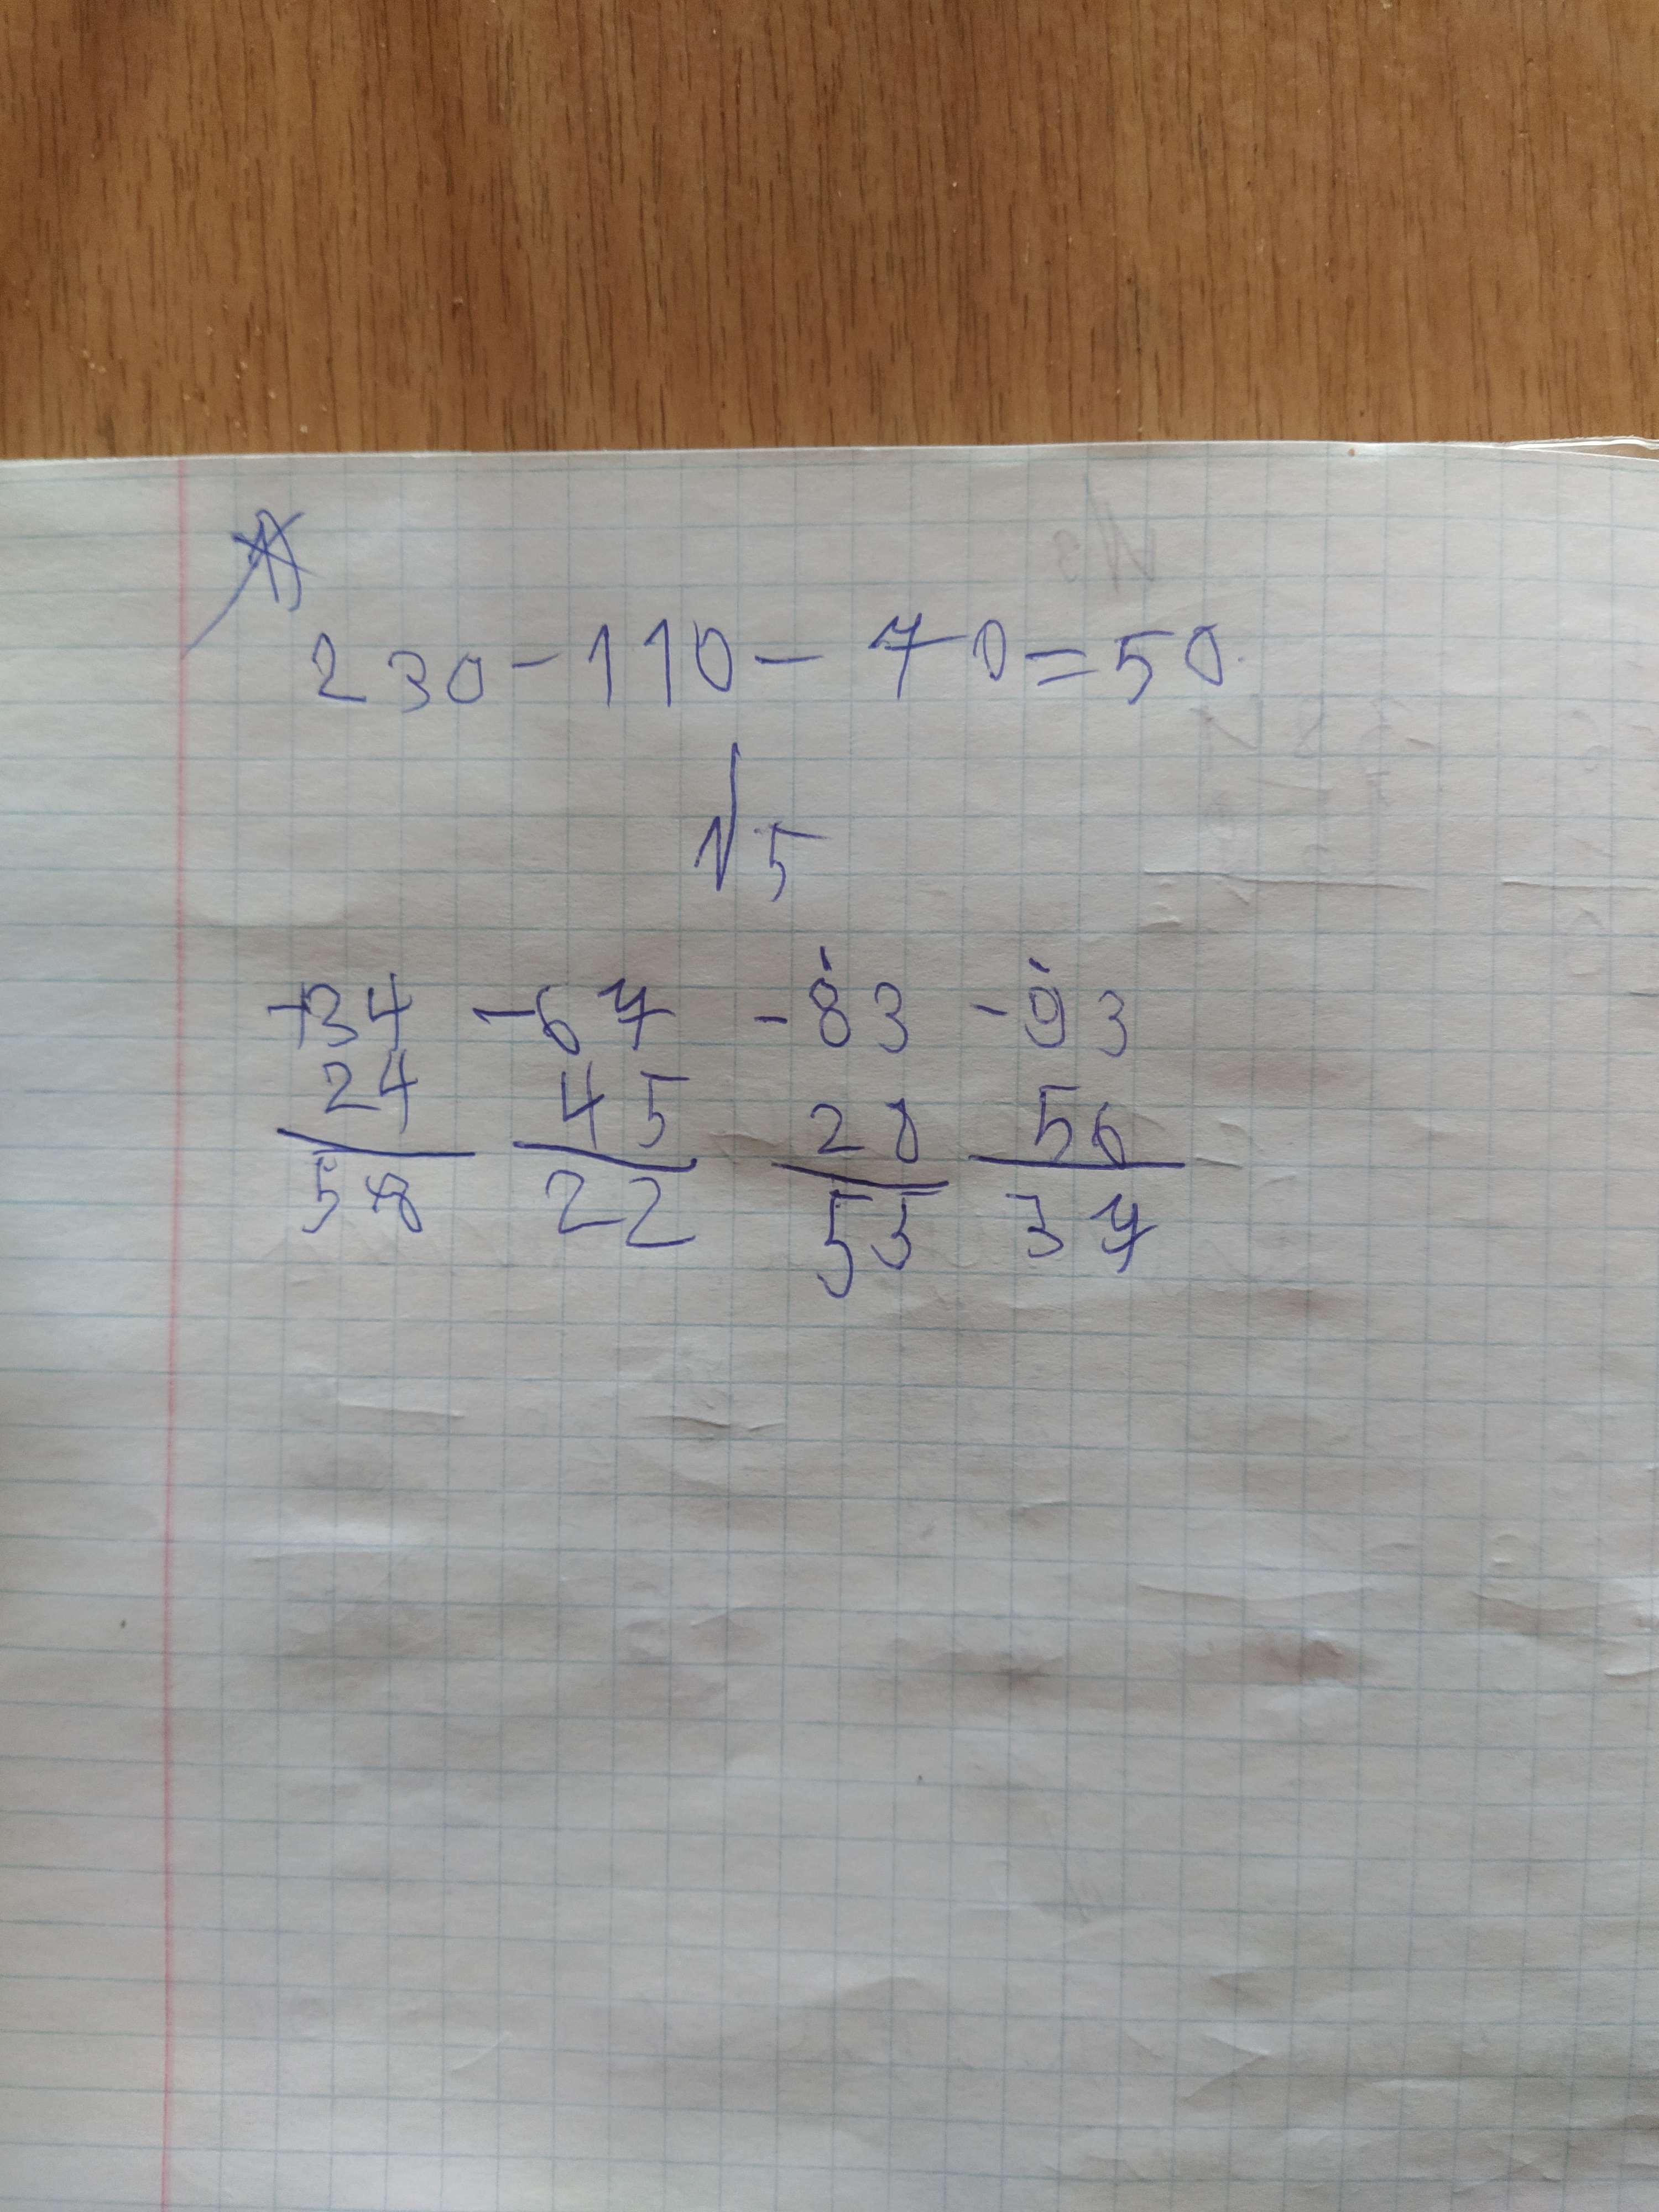 230-110-70=50
№5
+34 -67 -83 -93
24 45 28 56
58 22 55 37